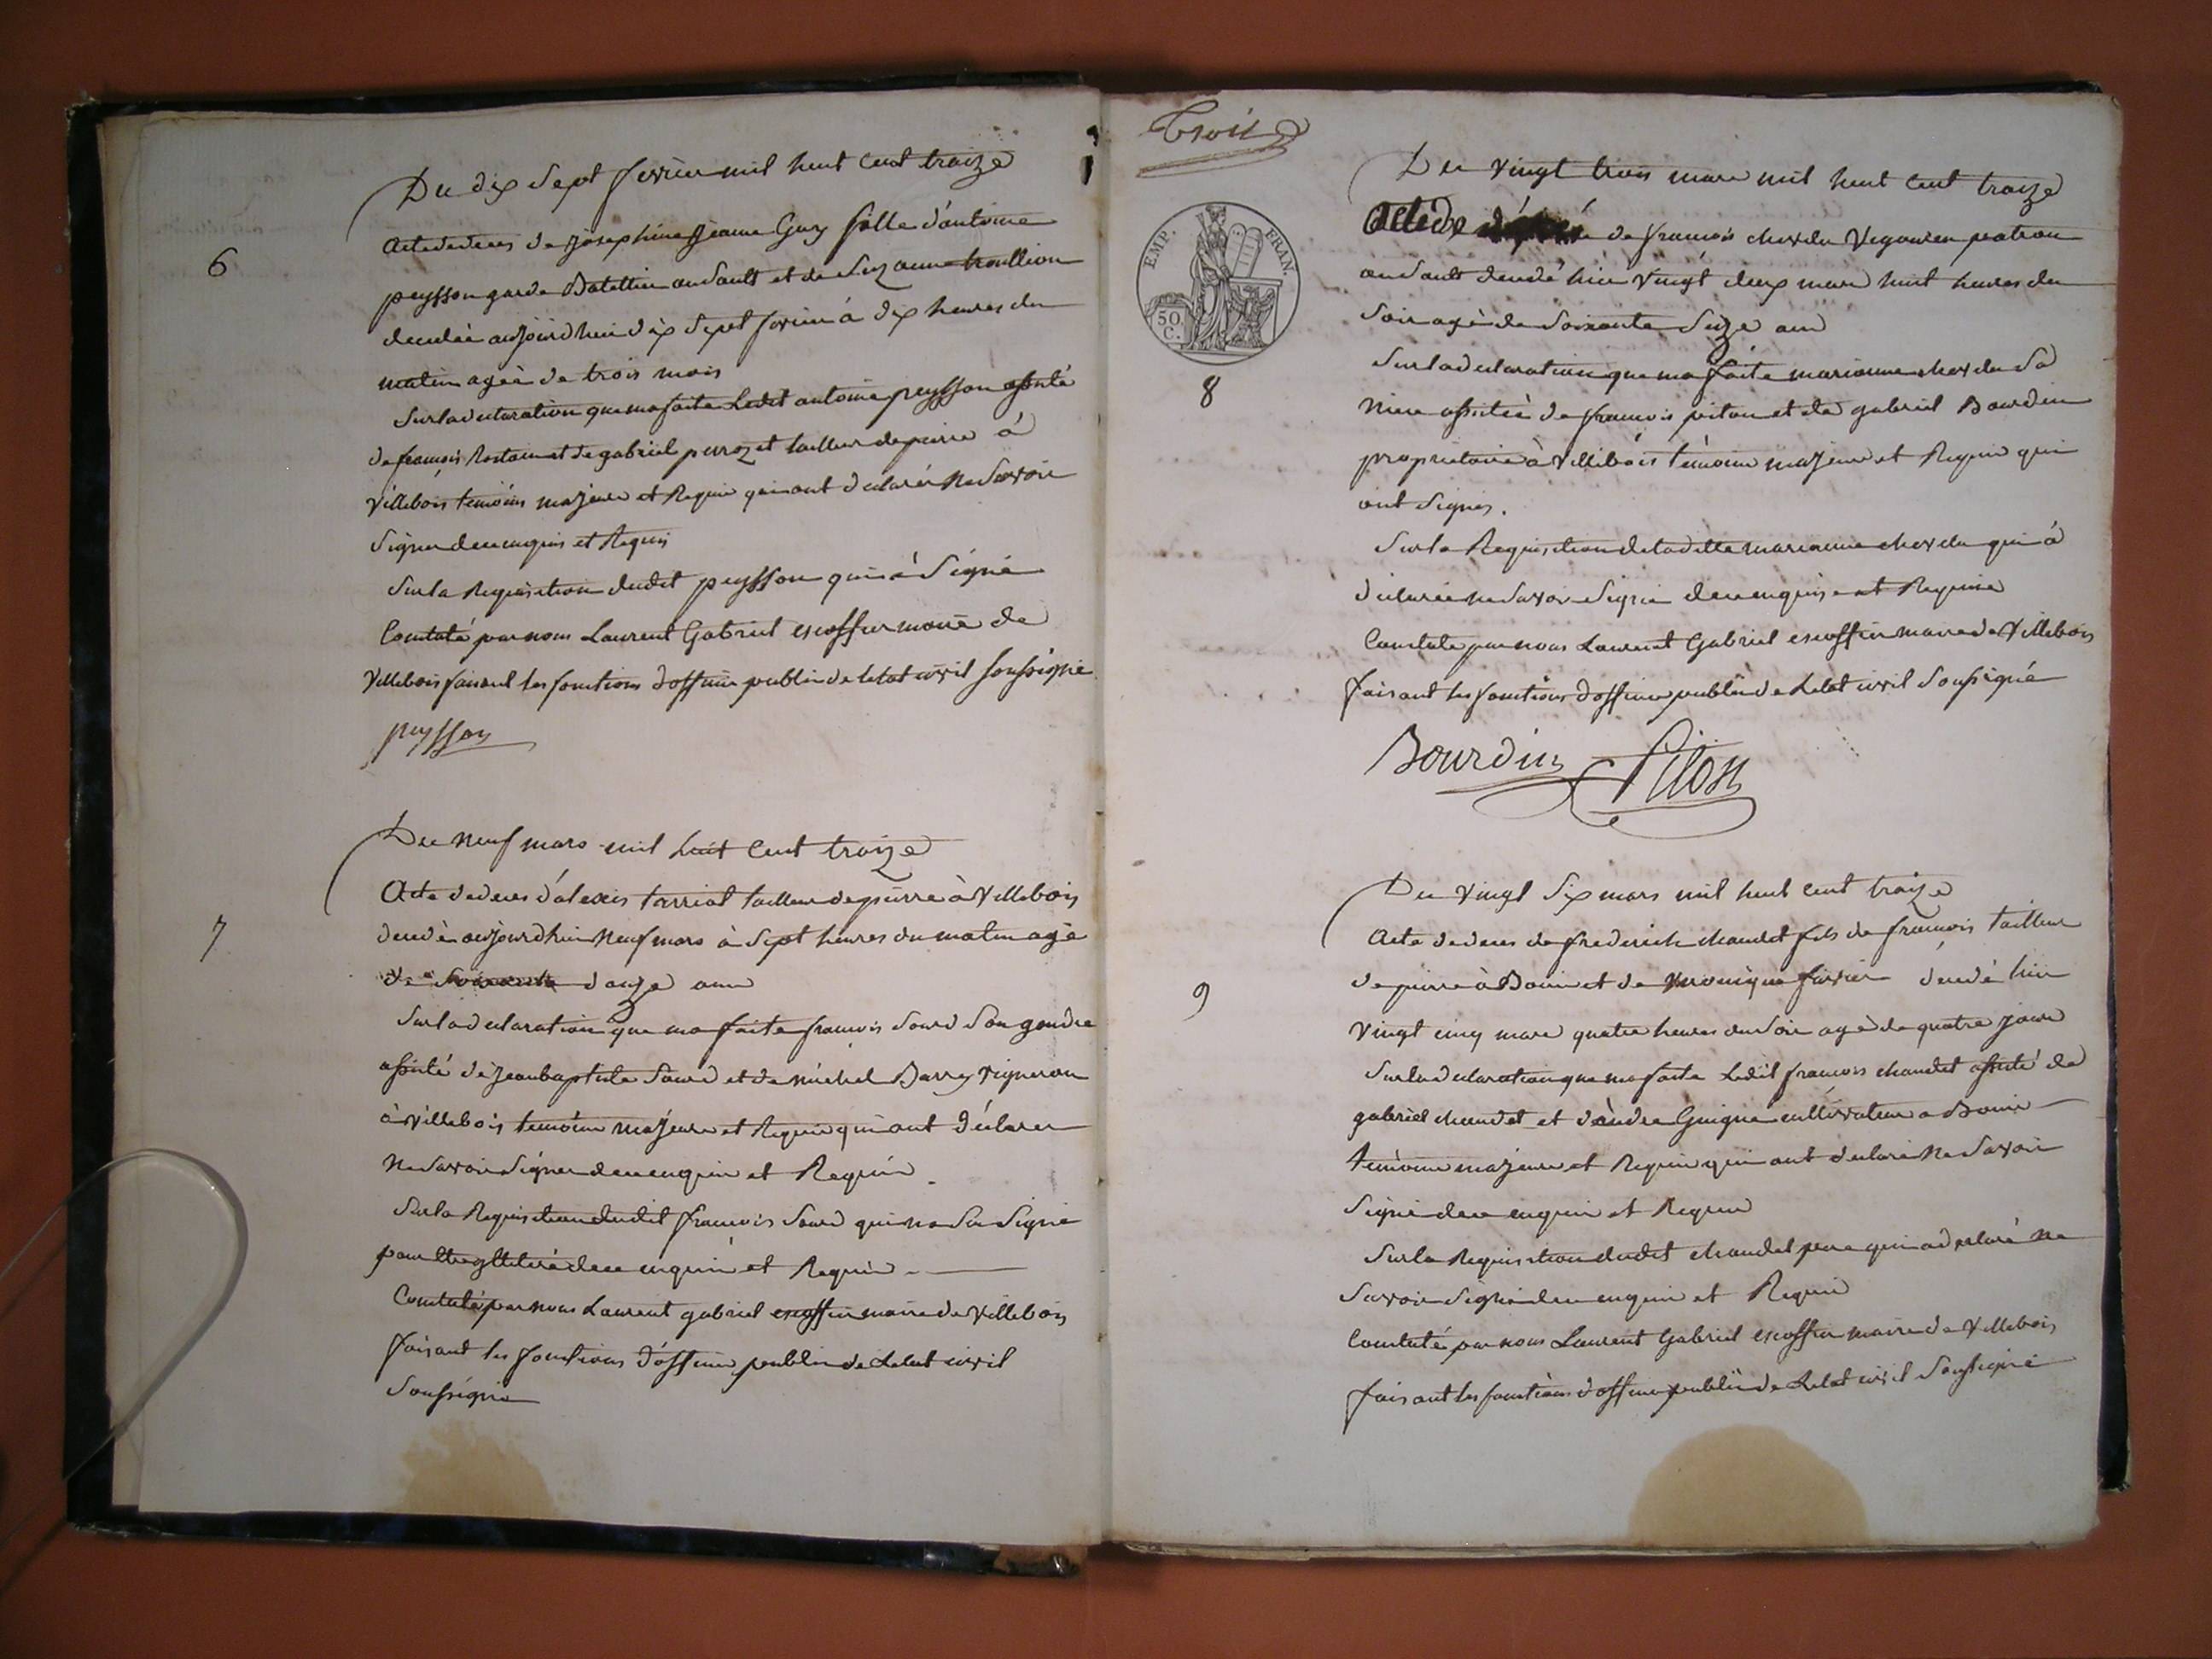 6
Du dix Sept fevrier mil huit Cent traize
acte de deces de josephine jeanne Guy fille d'antoine
peysson garde Batellier au Sault et de Suzanne trullion
decedée aujourdhui dix Sept fevrier à dix heures du
matin agée de trois mois
Sur la declaration que ma faite Ledit antoine peysson assisté
de francois Rostain et de gabriel perrozet tailleur de pierre à
villebois temoins majeurs et Requis qui ont declarés ne Savoir
Signer de ce enquis et Requis
Sur la Requisition dudit peysson qui à Signé
Constaté par nous Laurent Gabriel escoffier maire de
Villebois faisant les fonctions d'officier public de letat civil soussigné
peysson
7
Du neuf mars mil huit Cent traize
Acte de deces d'alexis tarriat tailleur de pierre à Villebois
decedé aujourdhui neuf mars à Sept heures du matin agé
de Soixante douze ans
Sur la declaration que ma faite francois Sourd Son gendre
assisté de jean baptiste Sourd et de michel Barry vigneron
à villebois temoins majeurs et Requis qui ont déclarer
ne Savoir Signer de ce enquis et Requis.
Sur la Requisition dudit francois Sourd qui na Su Signé
pour être illiteré de ce enquis et Requis
Constaté par nous Laurent gabriel escoffier maire de Villebois
faisant les fonctions d'officier public de Letat civil
Soussigné
Trois
EMP. FRAN.
50
C.
8
Du vingt trois mars mil huit Cent traize
Acte de de francois cherdu patron
au Sault decedé hier vingt deux mars huit heures du
Soir agé de Soixante Seize ans
Sur la declaration que ma faite marianne cherdu Sa
niece assistée de francois pilon et de gabriel Bourdin
proprietaire à Villebois témoins majeurs et Requis qui
ont Signés.
Sur la Requisition de ladite marianne cherdu qui à
declarée ne Savoir Signer de ce enquise et Requise
Constaté par nous Laurent Gabriel escoffier maire de Villebois
faisant les fonctions d'officier public de Letat civil Soussigné
Bourdin Pilon
9
Du vingt Six mars mil huit cent traize
Acte de deces de frederich chaudet fils de francois tailleur
de pierre à Bouis et de veronique favier decedé hier
vingt cinq mars quatre heures du Soir agé de quatre jours
Sur la declaration que ma faite Ledit francois chaudet assisté de
gabriel chaudet et d'andre Guigue cultivateur a Bouis
temoins majeurs et Requis qui ont declaré ne Savoir
Signé de ce enquis et Requis
Sur la Requisition dudit chaudet pere qui a declaré ne
Savoir Signé de ce enquis et Requis
Constaté par nous Laurent Gabriel escoffier maire de Villebois
faisant les fonctions d'officier public de Letat civil Soussigné